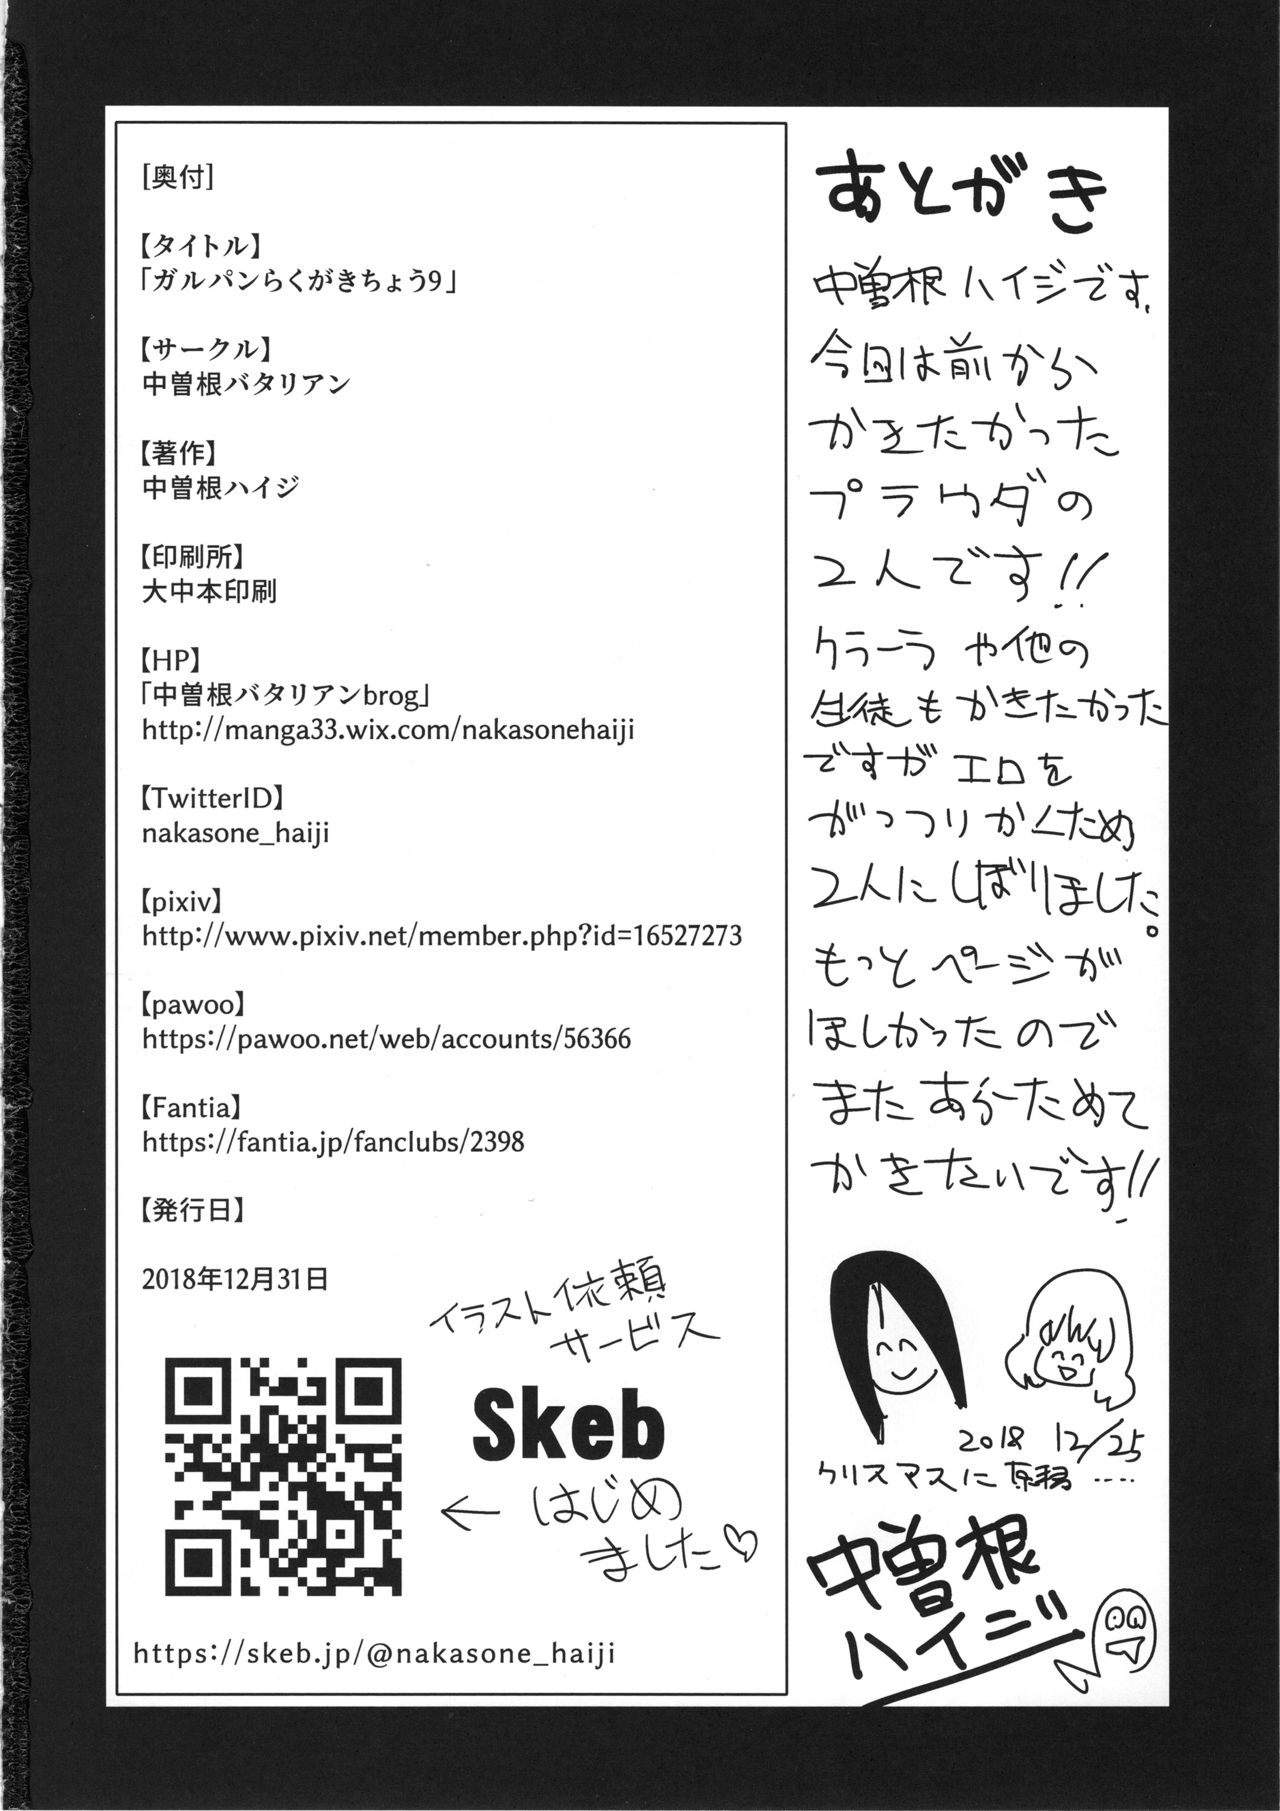 [奥付]
【タイトル】
「ガルパンらくがきちょう9」
【サークル】
中曽根バタリアン
【著作】
中曽根ハイジ
【印刷所】
大中本印刷
【HP】
「中曽根バタリアンbrog」
http://manga33.wix.com/nakasonehaiji
【TwitterID】
nakasone_haiji
【pixiv】
http://www.pixiv.net/member.php?id=16527273
【pawoo】
https://pawoo.net/web/accounts/56366
【Fantia】
https://fantia.jp/fanclubs/2398
【発行日】
2018年12月31日
イラスト依頼
サービス
Skeb
← はじめ
ました♡
https://skeb.jp/@nakasone_haiji
あとがき
中曽根ハイジです。
今回は前から
かきたかった
プラウダの
2人です!!
クラーラや他の
生徒もかきたかった
ですがエロを
がっつりかくため
2人にしぼりました。
もっとページが
ほしかったので
またあらためて
かきたいです!!
2018 12/25
クリスマスに原稿……
中曽根
ハイジ